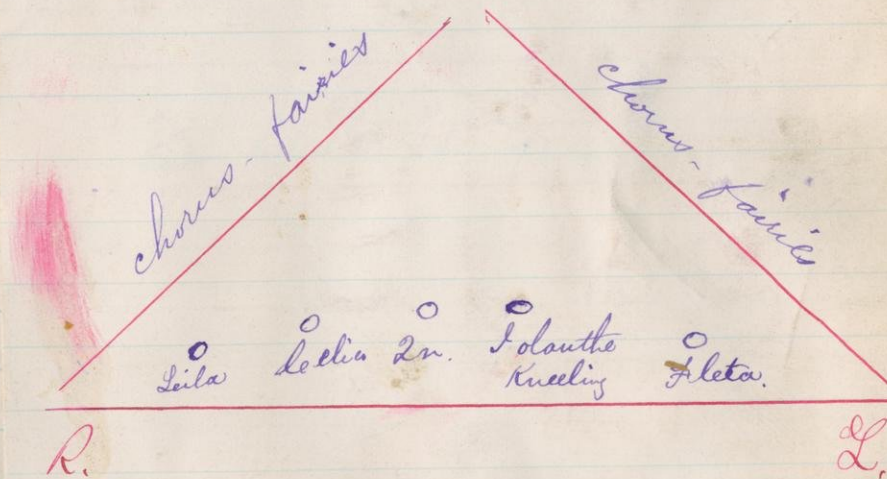 chorus - fairies
chorus - fairies
Leila
Celia
Qn.
Iolanthe
Kneeling
Fleta.
R.
L.